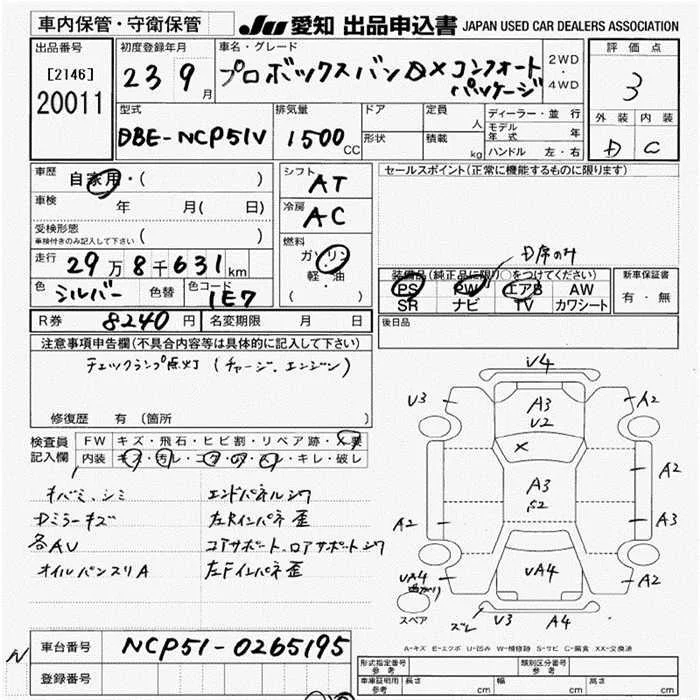 車内保管・守衛保管
JU 愛知 出品申込書 JAPAN USED CAR DEALERS ASSOCIATION
出品番号
[2146]
20011
初度登録年月
23 9月
車名・グレード
プロボックスバン DX コンフォート
パッケージ
2WD
・
4WD
評価点
3
外装 内装
D C
型式
DBE-NCP51V
排気量
1500 CC
ドア
形状
定員 人
積載 kg
ディーラー・並行
モデル年式 年
ハンドル 左・右
車歴 自家用・( )
車検 年 月( 日)
受検形態
車検付きのみ記入して下さい ( )
走行 29万8千631km
色 シルバー 色替 色コード 1E7
シフト
AT
冷房
AC
燃料
ガソリン
軽・油
( )
セールスポイント(正常に機能するものに限ります)
D席のみ
装備品(純正品に限り○をつけてください)
PS PW エアB AW
SR ナビ TV カワシート
新車保証書
有・無
R券 8240円 名変期限 月 日
後日品
注意事項申告欄(不具合内容等は具体的に記入して下さい)
チェックランプ点灯 (チャージ、エンジン)
修復歴 有 (箇所 )
検査員
記入欄
FW キズ・飛石・ヒビ割・リペア跡・X要
内装 キズ・汚レ・コゲ・穴・スレ・キレ・破レ
キバミ、シミ エンドパネルシワ
Dミラーキズ 左Rインパネ歪
各AU コアサポート、ロアサポートシワ
オイルパンスリA 左Fインパネ歪
U4
U3
A3
U2
A2
X
A3
S2
A2
A2
A3
UA4
UA4
A2
スペア
ズレ U3 A4
A-キズ E-エクボ U-凹み W-補修跡 S-サビ C-腐食 XX-交換済
車台番号 NCP51-0265195
登録番号
形式指定番号
参考
類別区分番号
参考
車庫証明用
参考
長さ cm 幅 cm 高さ cm